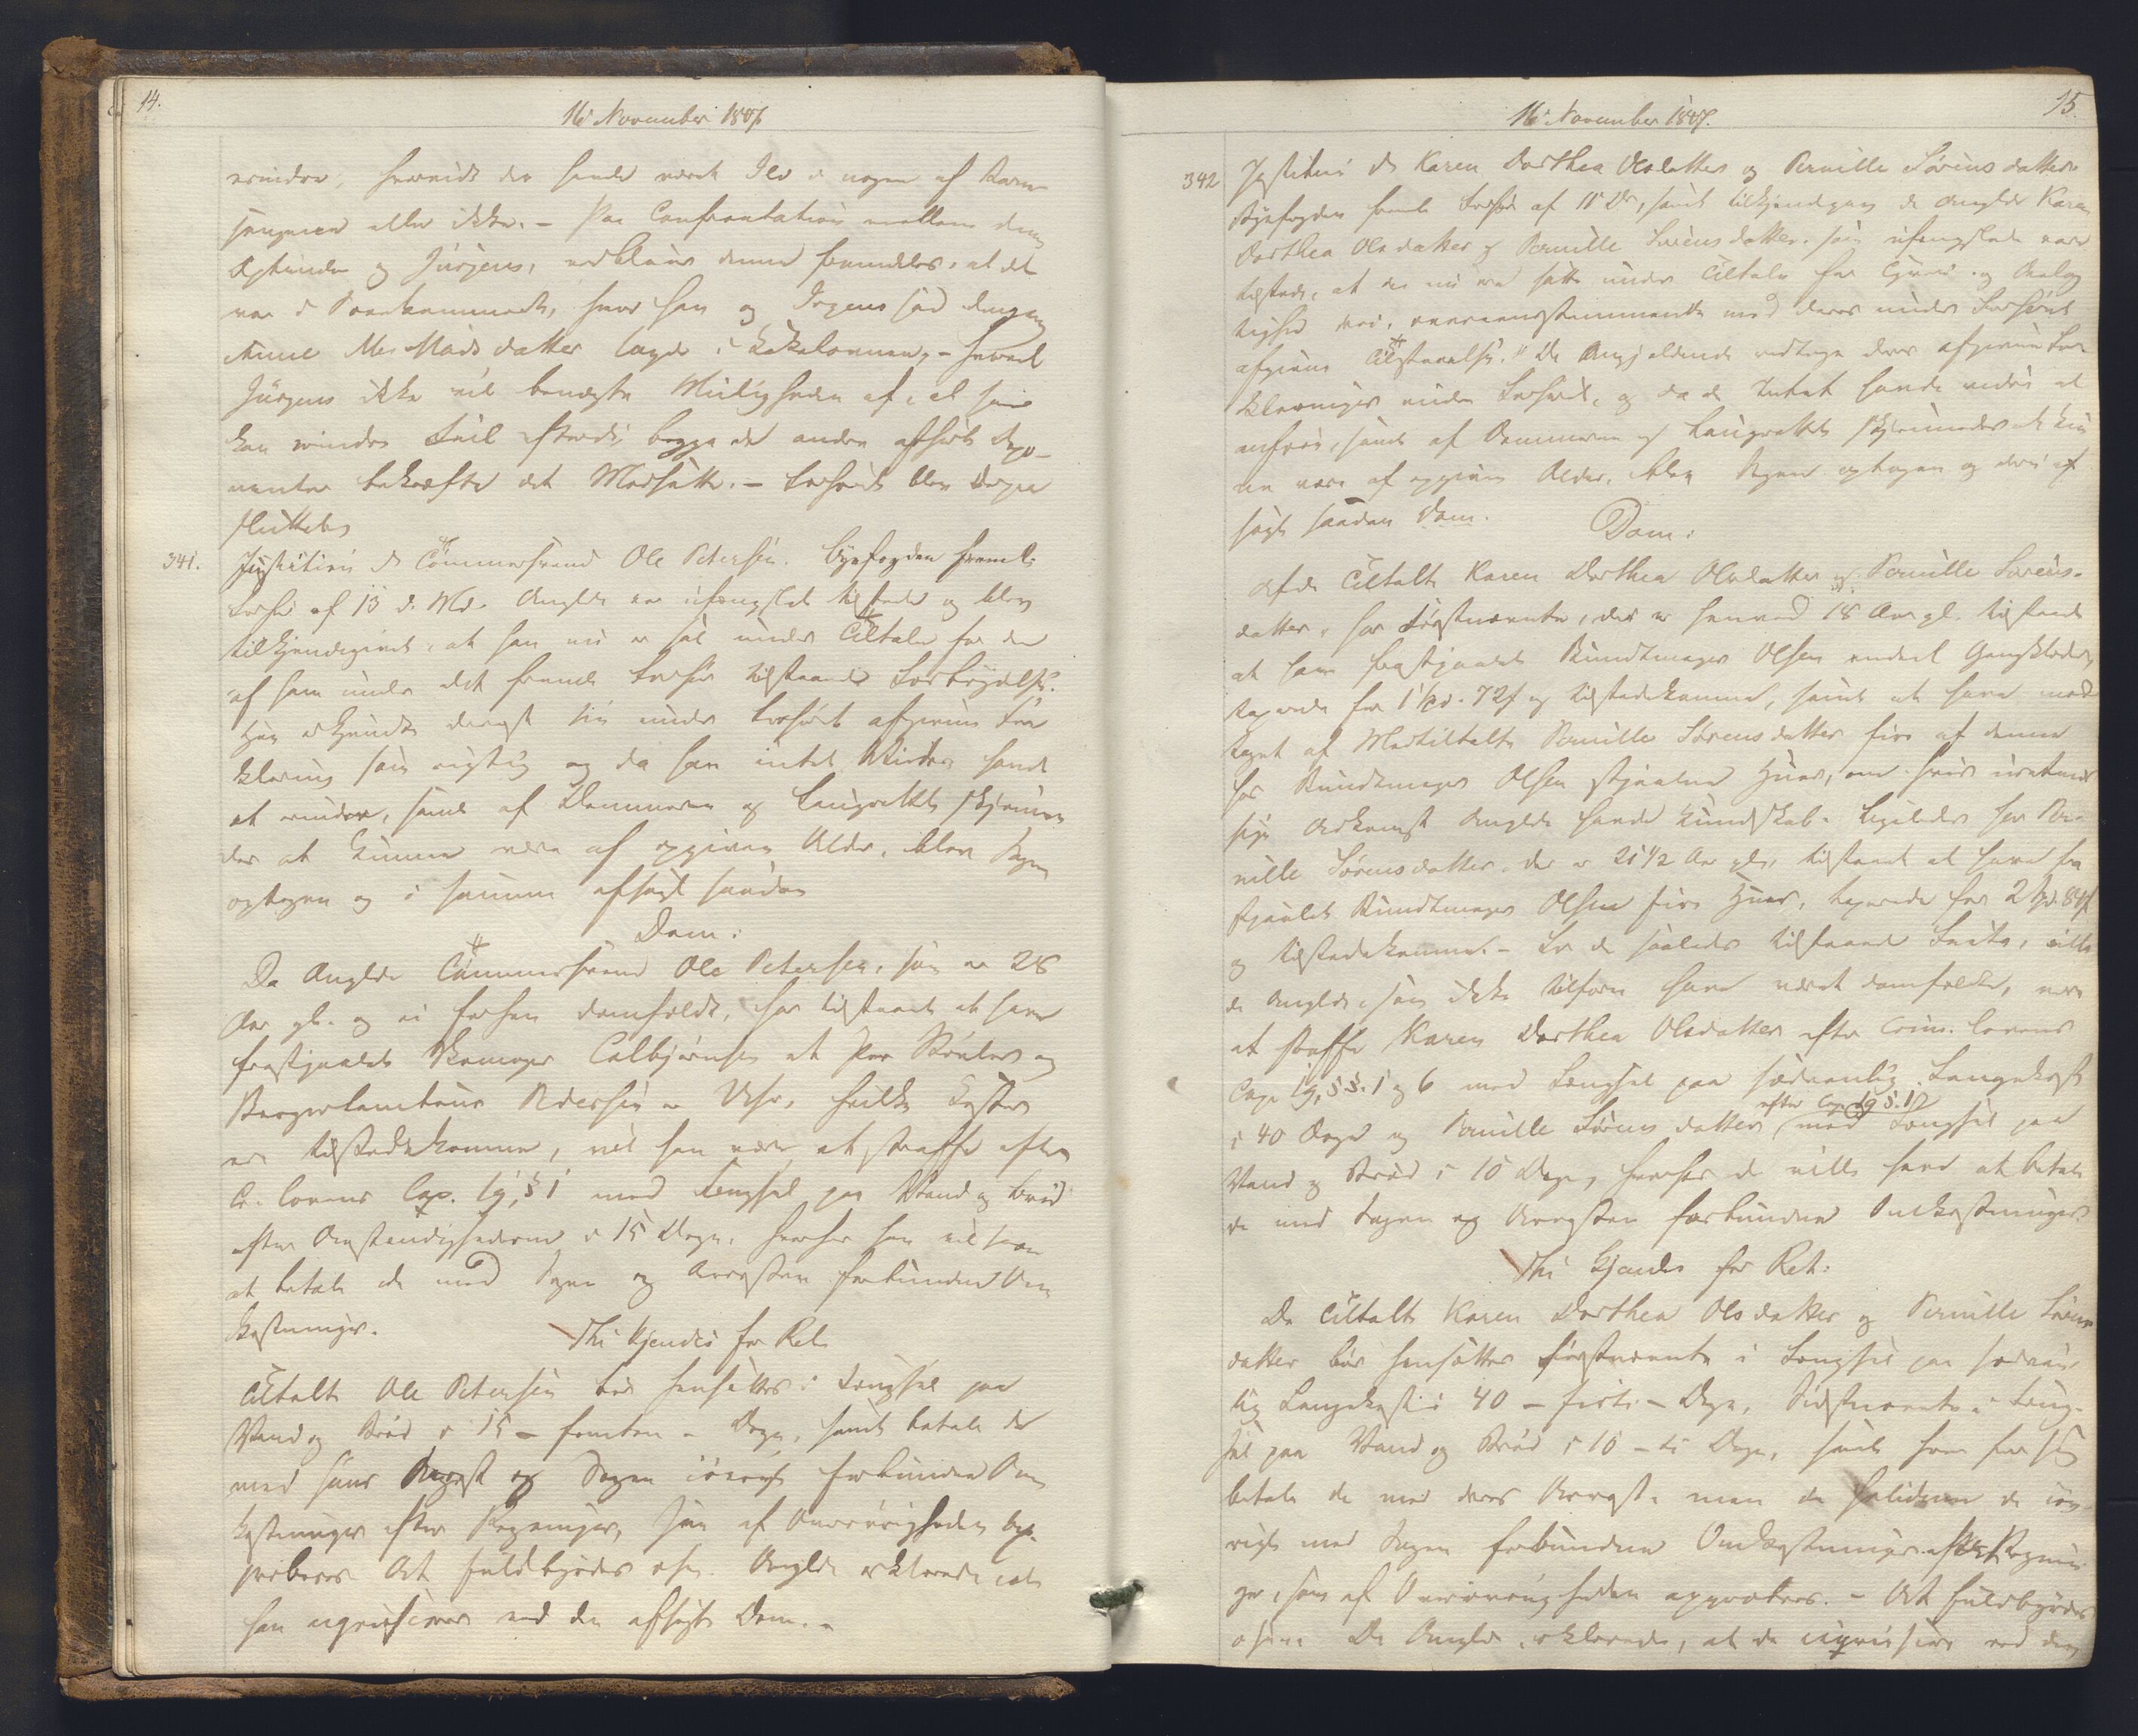 14.
16 November 1847
erindre, hvorvidt der havde været Ild i nogen af Kam-
 eller ikke. – Paa Confrontation mellem denne
Deponent og Jürgens, vedblev denne fremdeles, at det
var i  hvor han og Jürgens sad dengang
Anne Mar Madsdatter lagde i Kakelovnen, – hvorved
Jürgens ikke vil benægte Muligheden af, at han
kan erindre Feil efterdi begge de andre afhørte Depo-
nenter bekræfte det Modsatte. – Forhøret blev derpaa
sluttet.
341. Justitien  Tømmersvend Ole Petersen. Byefogden freml.
Forhør af 13 d. Md. Anglde var ufængslet tilstede og blev
tilkjendegivet, at han nu er sat under Tiltale for den
af ham under det fremlte Forhør tilstaaede Forbrydelse.
Han erkjendte derpaa sin under Forhøret afgivne For
klaring som rigtig og da han intet Videre havde
at erindre, samt af Dommeren og Laugrettet skjønne
des at kunne være af opgiven Alder, blev Sagen
optagen og i samme afsagt saadan
Dom:
Da Anglde Tømmersvend Ole Petersen, som er 28
Aar gl. og ei forhen domfældt, har tilstaaet at have
frastjaalet Skomager Colbjørnsen et Par Støvler og
 Petersen et Uhr, hvilke Koster
ere tilstedekomne, vil han være at straffe efter
Cr. Lovens Cap. 19, § 1 med Fængsel paa Vand og Brød
efter Omstændighederne i 15 Dage, hvorhos han vil have
at betale de med Sagen og Arresten forbundne Om
kostninger.
Thi kjendes for Ret
Tiltalte Ole Petersen bør hensættes i Fængsel paa
Vand og Brød i 15 – femten – Dage, samt betale de
med hans Arrest og Sagen iøvrigt forbundne Om
kostninger efter Regninger, som af Øvrigheden ap-
proberes. At fuldbyrdes osv. Anglde erklærede, at
han acquiescerer ved den afsagte Dom. –
15.
16 November 1847.
342 Justitien  Karen Dorthea Olsdatter og Pernille Sørensdatter
Byefogden freml. Forhør af 11 Ds, samt tilkjendegav de Anglde Karen
Dorthea Olsdatter og Pernille Sørensdatter, som ufængslede vare
tilstede, at de nu ere satte under Tiltale for Tyveri og Deelag-
tighed deri, overeensstemmende med deres under Forhøret
afgivne Tilstaaelse. De Angjældende vedtoge deres afgivne For
klaringer under Forhøret, og da de Intet havde videre at
anføre, samt af Dommeren og Laugrettet skjønnedes at kun
ne være af opgiven Alder, blev Sagen optagen og deri af
sagt saadan Dom.
Dom:
Af de Tiltalte Karen Dorthea Olsdatter og Pernille Sørens-
datter, har Førstnævnte, der er henved 18 Aar gl. tilstaaet
at have frastjaalet Bundtmager Olsen endeel Gangklæder,
taxerede for 1 Spd. 72 s og tilstedekomne, samt at have mod
taget af Medtiltalte Pernille Sørensdatter fire af denne
hos Bundtmager Olsen stjaalne Huer, om hvis uretmæs
sige Adkomst Anglde havde Kundskab. Ligeledes har Per-
nille Sørensdatter, der er 21 1/2 Aar gl., tilstaaet at have fra
stjaalet Bundtmager Olsen fire Huer, taxerede for 2 Spd. 84 s
og tilstedekomne. – For de saaledes tilstaaede Facta, ville
de Anglde, som ikke tilforn have været domfældte, være
at straffe Karen Dorthea Olsdatter efter Crim. Lovens
Cap. 19, §§. 1 og 6 med Fængsel paa sædvanlig Fangekost
i 40 Dage og Pernille Sørensdatter efter Cap. 19 §. 1 med Fængsel paa
Vand og Brød i 10 Dage, hvorhos de ville have at betale
de med Sagen og Arresten forbundne Omkostninger.
Thi kjendes for Ret:
De Tiltalte Karen Dorthea Olsdatter og Pernille Sørens
datter bør hensættes Førstnævnte i Fængsel paa sædvan-
lig Fangekost i 40 – firti – Dage, Sidstnævnte i Fæng-
sel paa Vand og Brød i 10 – ti Dage, samt hver for sig
betale de med deres Arrest, men in solidum de iøv-
rigt med Sagen forbundne Omkostninger efter Regnin
ger, som af Øvrigheden approberes. – At fuldbyrdes
osv. De Anglde erklærede, at de acquiescere ved den